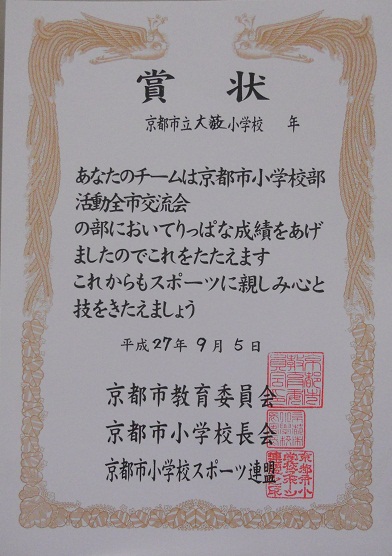 賞状
京都市立大藪小学校　年
あなたのチームは京都市小学校部
活動全市交流会
の部においてりっぱな成績をあげ
ましたのでこれをたたえます
これからもスポーツに親しみ心と
技をきたえましょう
平成27年9月5日
京都市教育委員会
京都市小学校長会
京都市小学校スポーツ連盟